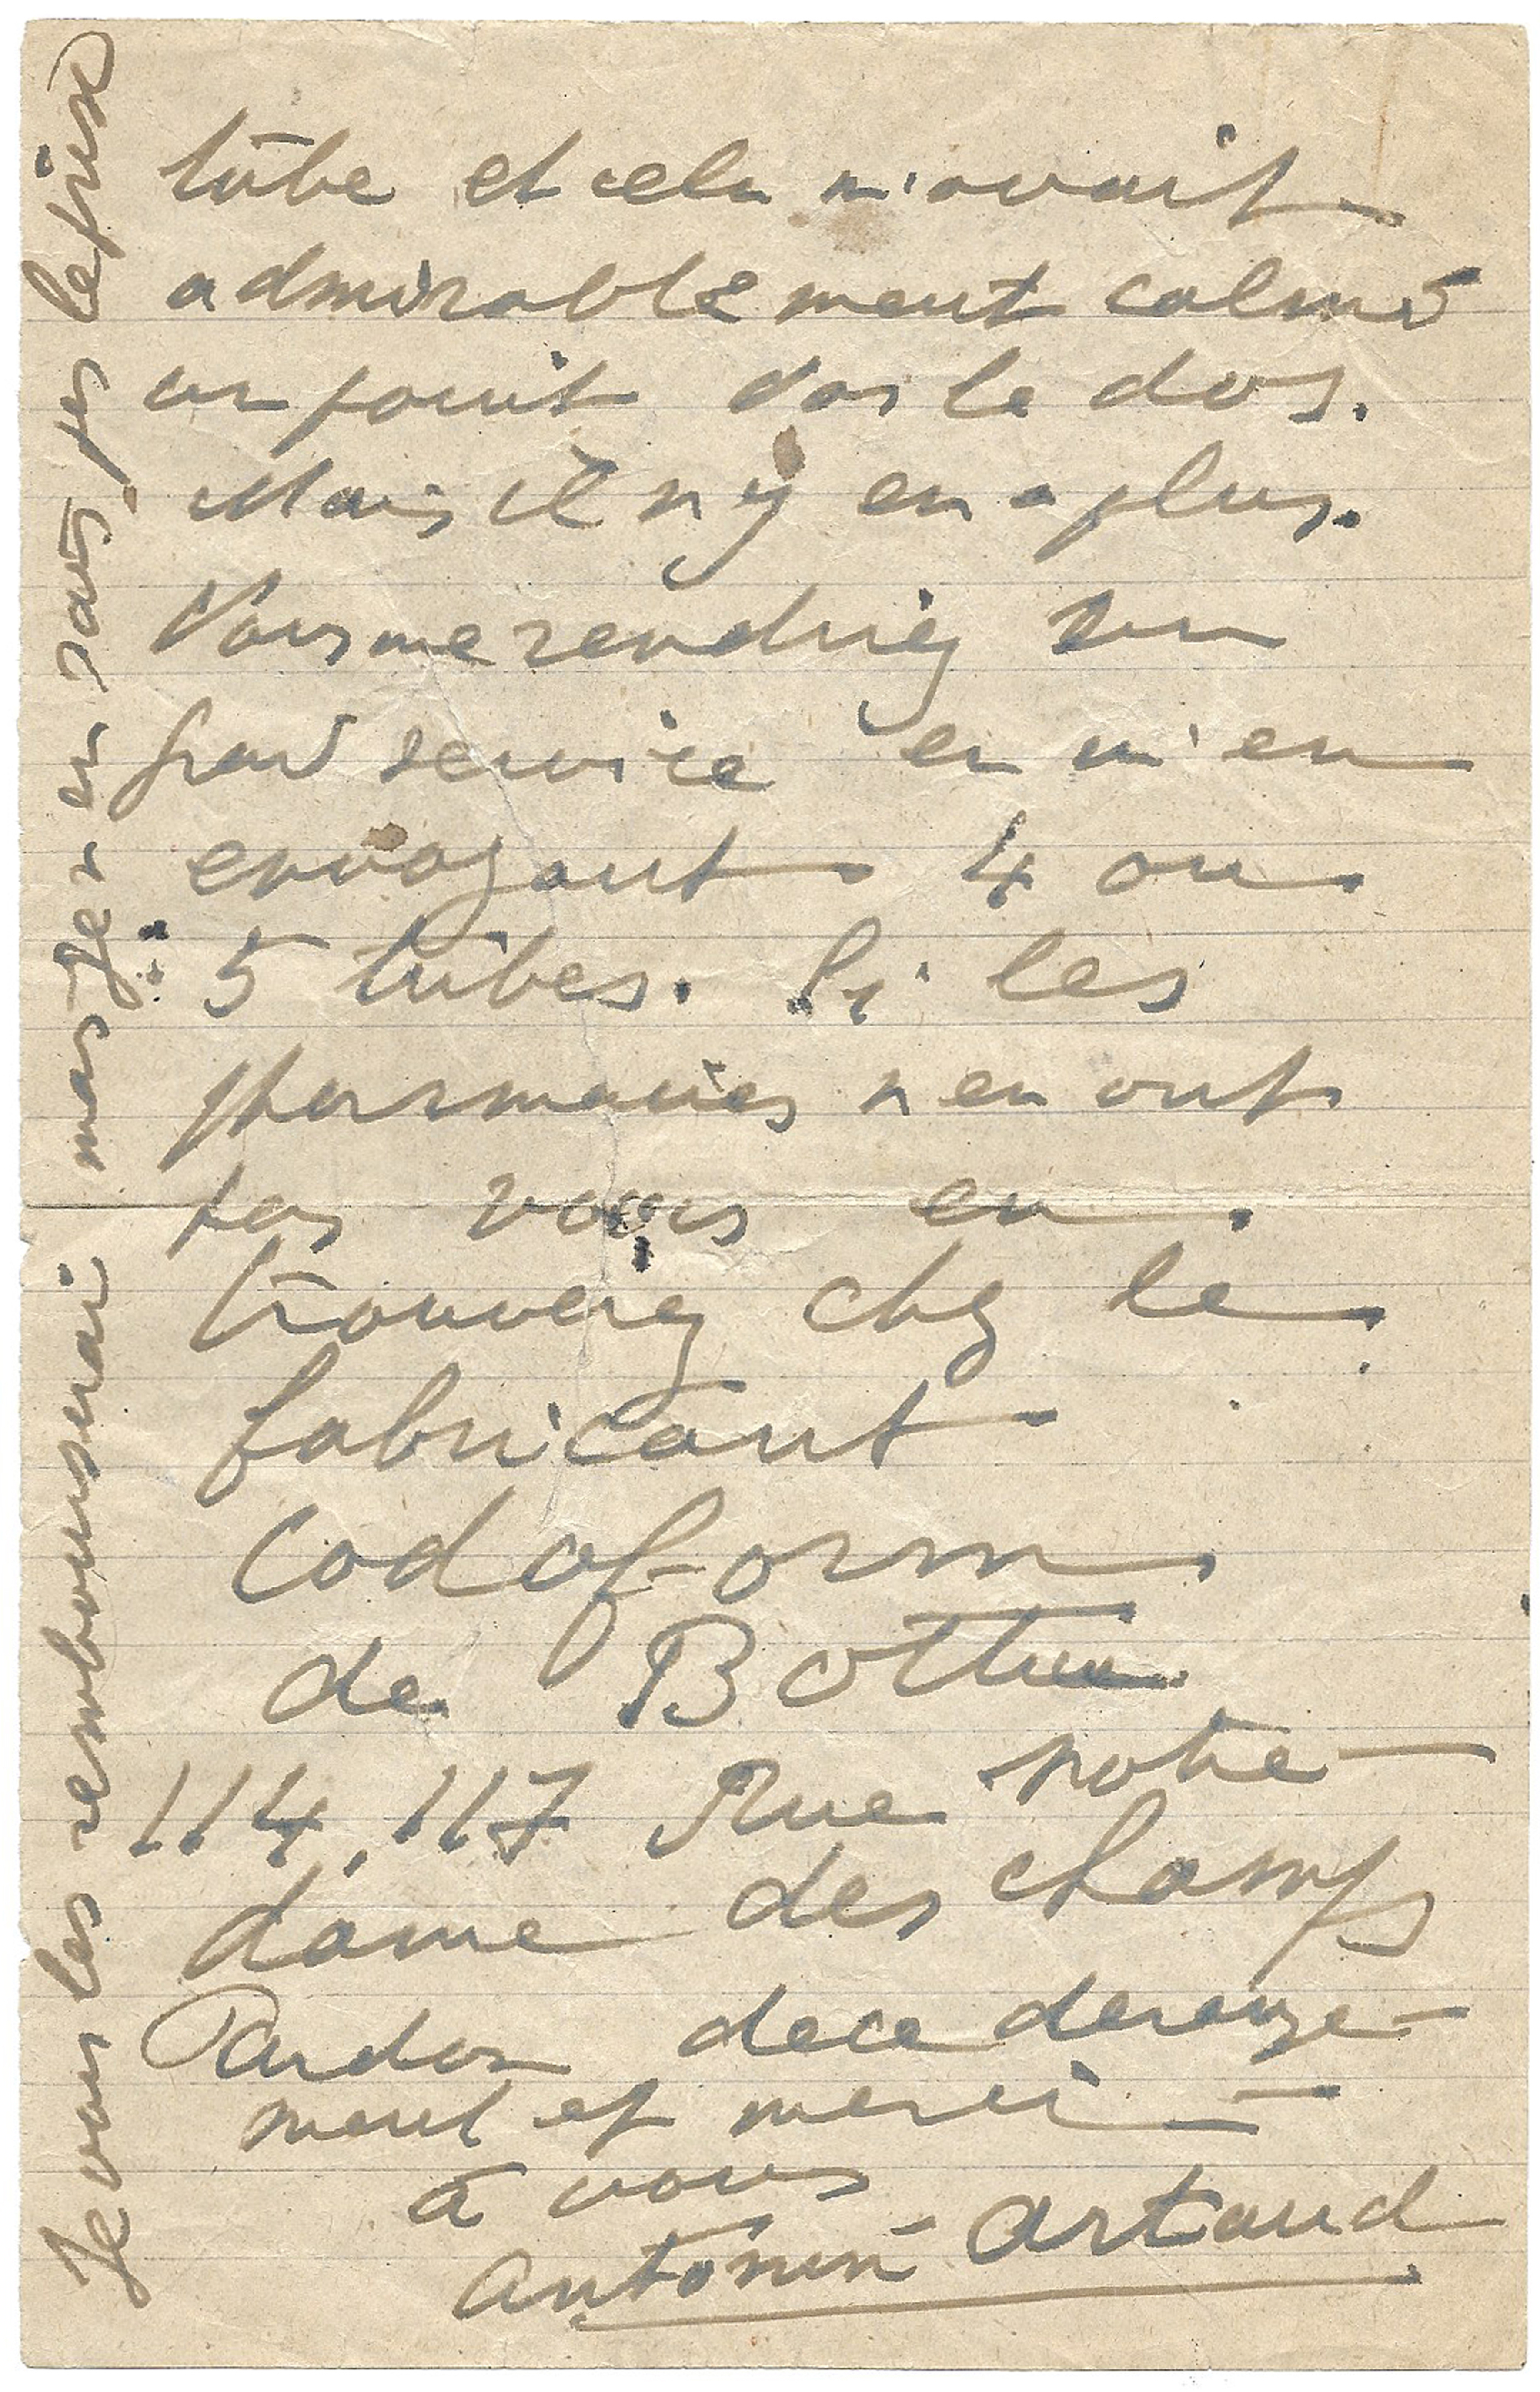 tube et cela m'avait
admirablement calmé
un point dans le dos.
Mais il n y en a plus.
Vous me rendriez un
grand service en m'en
envoyant 4 ou
5 tubes. Si les
pharmacies n en ont
pas vous en
trouverez chez le
fabricant
Codoform
de Bottu
114, 117 Rue notre
dame des champs
Pardon de ce derange-
ment et merci
à vous
Antonin Artaud
Je vous les rembourserai mais je n en sais pas le prix